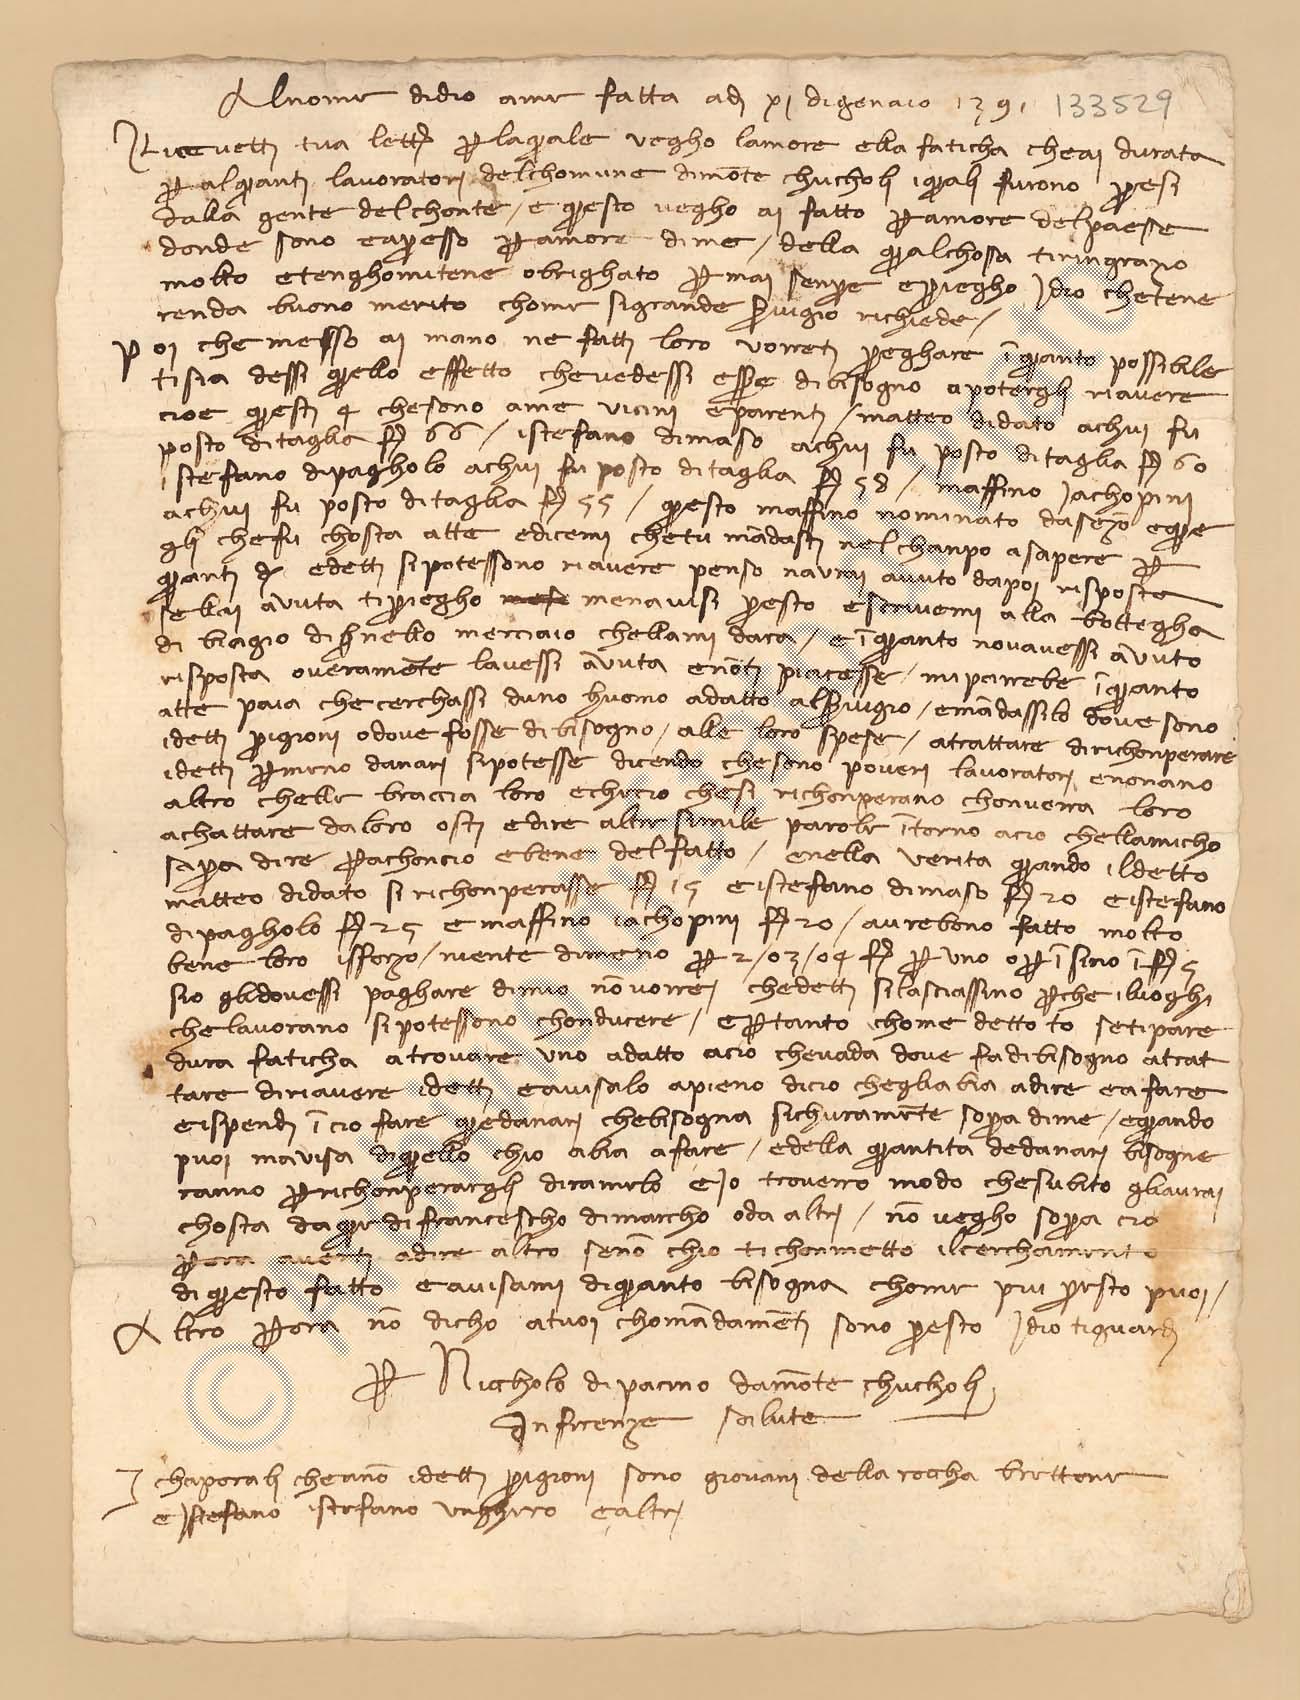 Alnome didio ame fatta adj xj digenaio 1391 133529
Ricevetti tua lettera per laquale vegho lamore ella faticha cheai durata
per alquanti lavoratori delchomune dimonte chucholi iquali furono presi
dalla gente delchonte / e questo vegho ai fatto per amore delpaese
donde sono eapresso per amore dime / della qualchossa tiringrazio
molto etenghomitene obrighato per mai senpre epriegho Idio chetene
renda buono merito chome sigrande servigio richiede /
Poi chemesso ai mano ne fatti loro vorreti preghare inquanto possibile
tisia dessi quello effetto chevedessi essere dibisogno apotergli riavere
cioe questi 4 chesono ame vicini eparenti / matteo didato achui fu
posto ditaglia fl 66 / istefano dimaso achui fu posto ditaglia fl 60
istefano dipagholo achui fu posto ditaglia fl 58 / maffino Jachopini
achui fu posto ditaglia fl 55 / questo maffino nominato dasezo eque
gli chefu chosta atte edicemi chetu mandasti nelchanpo asapere per
quanti d edetti sipotessono riavere penso navrai avuto dapoi risposta
sellai avuta tipriegho menavisi presto escrivemi alla bottegha
di biagio di nello merciaio chellami dara / e inquanto novavessi avuto
risposta overamente lavessi avuta enonti piacesse / mi parrebe inquanto
atte paia checerchassi duno huomo adatto alservigio / emandassilo dove sono
idetti prigioni odove fosse dibisogno / alle loro spese / atrattare dirichonperare
idetti permeno danari sipotesse dicendo chesono poveri lavoratori enonano
altro chelle braccia loro echeccio chesi richonperano chonverra loro
achattare daloro osti edire altre simile parole intorno acio chellamicho
sapra dire perachoncio ebene delfatto / enella verita quando ildetto
matteo didato sirichonperasse fl 15 eistefano dimaso fl 20 eistefano
dipagholo fl 25 emaffino iachopini fl 20 / aurebono fatto molto
bene loro isforzo / niente dimeno per 2 / o3 / o4 fl per uno oper insino in fl 5
sio glidovessi paghare dimio nonvorrei chedetti silasciassino perche iluoghi
chelavorano sipotessono chonducere / epertanto chome detto to setipare
dura faticha atrovare uno adatto acio chevada dove fadibisogno atrat
tare diriavere idetti eavisalo apieno dicio chegliabia adire eafare
eispendi incio fare quedanari chebisogna sichuramente sopra dime / equando
puoi mavisa diquello chio abia afare / edella quantita dedanari bisogne
ranno perrichonperargli diramelo eio troverro modo chesubito gliavrai
chosta daque difrancescho dimarcho oda altri / non vegho sopra cio
perora averti adire altro senon chio tichommetto ilcerchamento
diquesto fatto eavisami diquanto bisogna chome piu presto puoi /
Altro perora non dicho atuoi chomandamenti sono presto Idio tiguardi
per Niccholo di pacino damonte chucholi
Infirenze salute
I chaporali cheanno idetti prigioni sono giovani della roccha brettone
eistefano istefano unghero ealtri